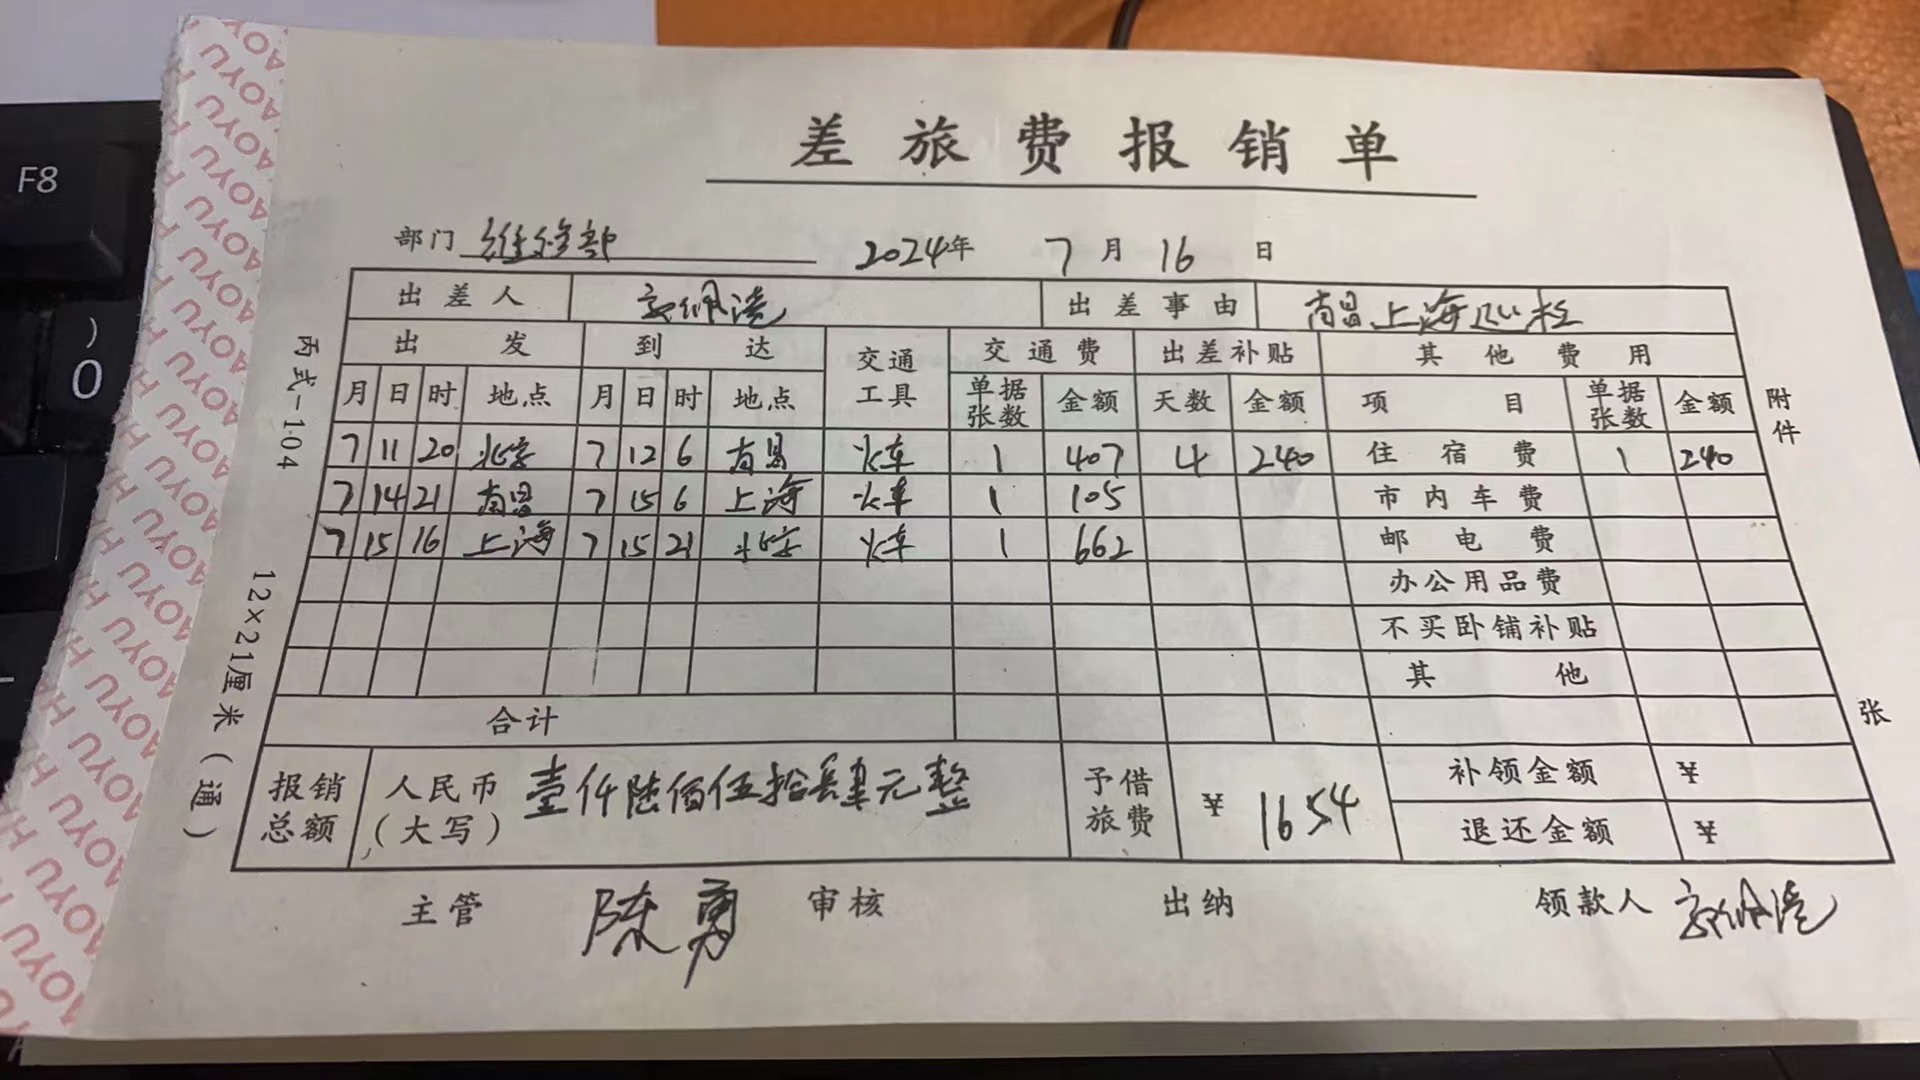 差旅费报销单
部门 维修部 2024年 7月16日
出差人 出差事由 南昌上海巡检
出发 到达 交通工具 交通费 出差补贴 其他费用
月 日 时 地点 月 日 时 地点 单据张数 金额 天数 金额 项目 单据张数 金额
7 11 20 北京 7 12 6 南昌 火车 1 407 4 240 住宿费 1 240
7 14 21 南昌 7 15 6 上海 火车 1 105 市内车费
7 15 16 上海 7 15 21 北京 火车 1 662 邮电费
办公用品费
不买卧铺补贴
其他
合计
报销总额 人民币(大写) 壹仟陆佰伍拾肆元整 予借旅费 ¥ 1654 补领金额 ¥
退还金额 ¥
主管 陈勇 审核 出纳 领款人
丙式-104
12×21厘米(通)
附件
张
F8
)
0
HAOYU